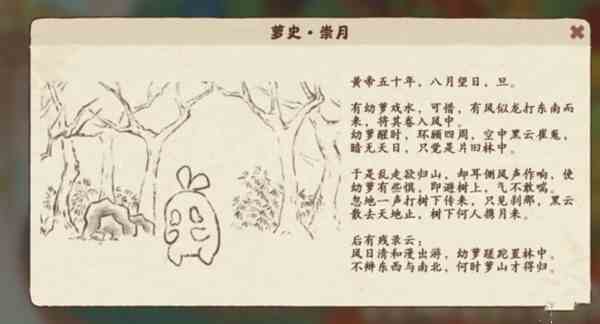 萝史·崇月
黄帝五十年，八月望日，旦。
有幼萝戏水，可惜，有风似龙打东南而
来，将其卷入风中。
幼萝醒时，环顾四周，空中黑云崔嵬，
暗无天日，只觉是片旧林中。
于是乱走欲归山，却耳侧风声作响，使
幼萝有些惧，即避树上，气不敢喘。
忽地一声打树下传来，只见刹那，黑云
散去天地止，树下何人携月来。
后有残录云：
风日清和漫出游，幼萝蹉跎置林中。
不辨东西与南北，何时萝山才得归。